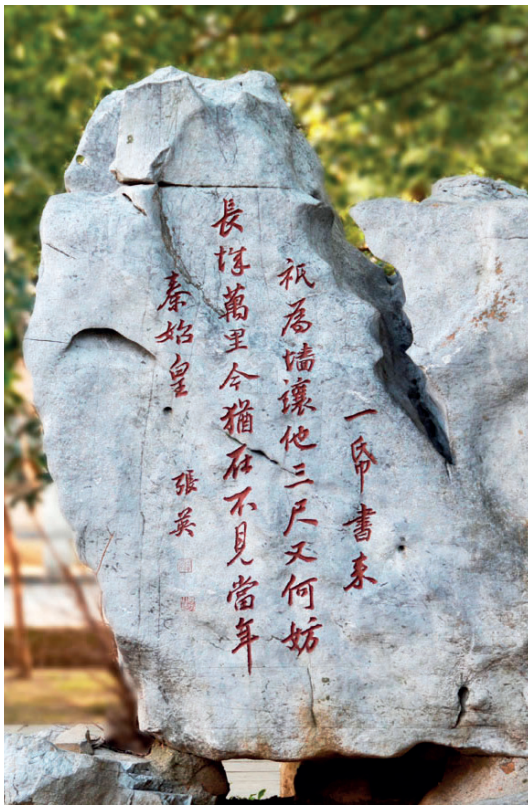 一帋書来
祇為墙讓他三尺又何妨
長城萬里今猶在不見當年
秦始皇 張英